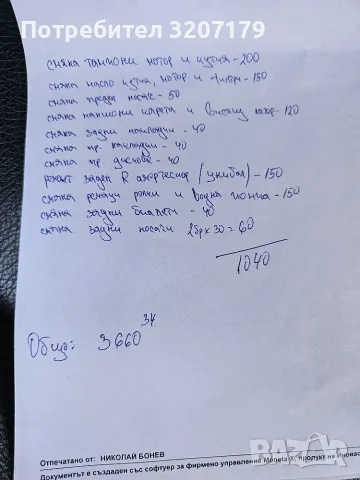 Потребител 3207179
смяка тампони мотор и кутия - 200
смяна масло кутия, мотор и филтри - 150
смяна преден носач - 50
смяна накшони карета и висящ лагер - 120
смяка задни накладки - 40
смяна пр. накладки - 40
смяна пр. дискове - 40
ремонт заден R амортисьор (унибал) - 150
смяна ремъци ролки и водна помпа - 150
смяна задни биалети - 40
смяна задни носачи 2бр х 30 = 60
1040
Общо: 3660 34
Отпечатано от: НИКОЛАЙ БОНЕВ
Документът е създаден със софтуер за фирмено управление
bazar